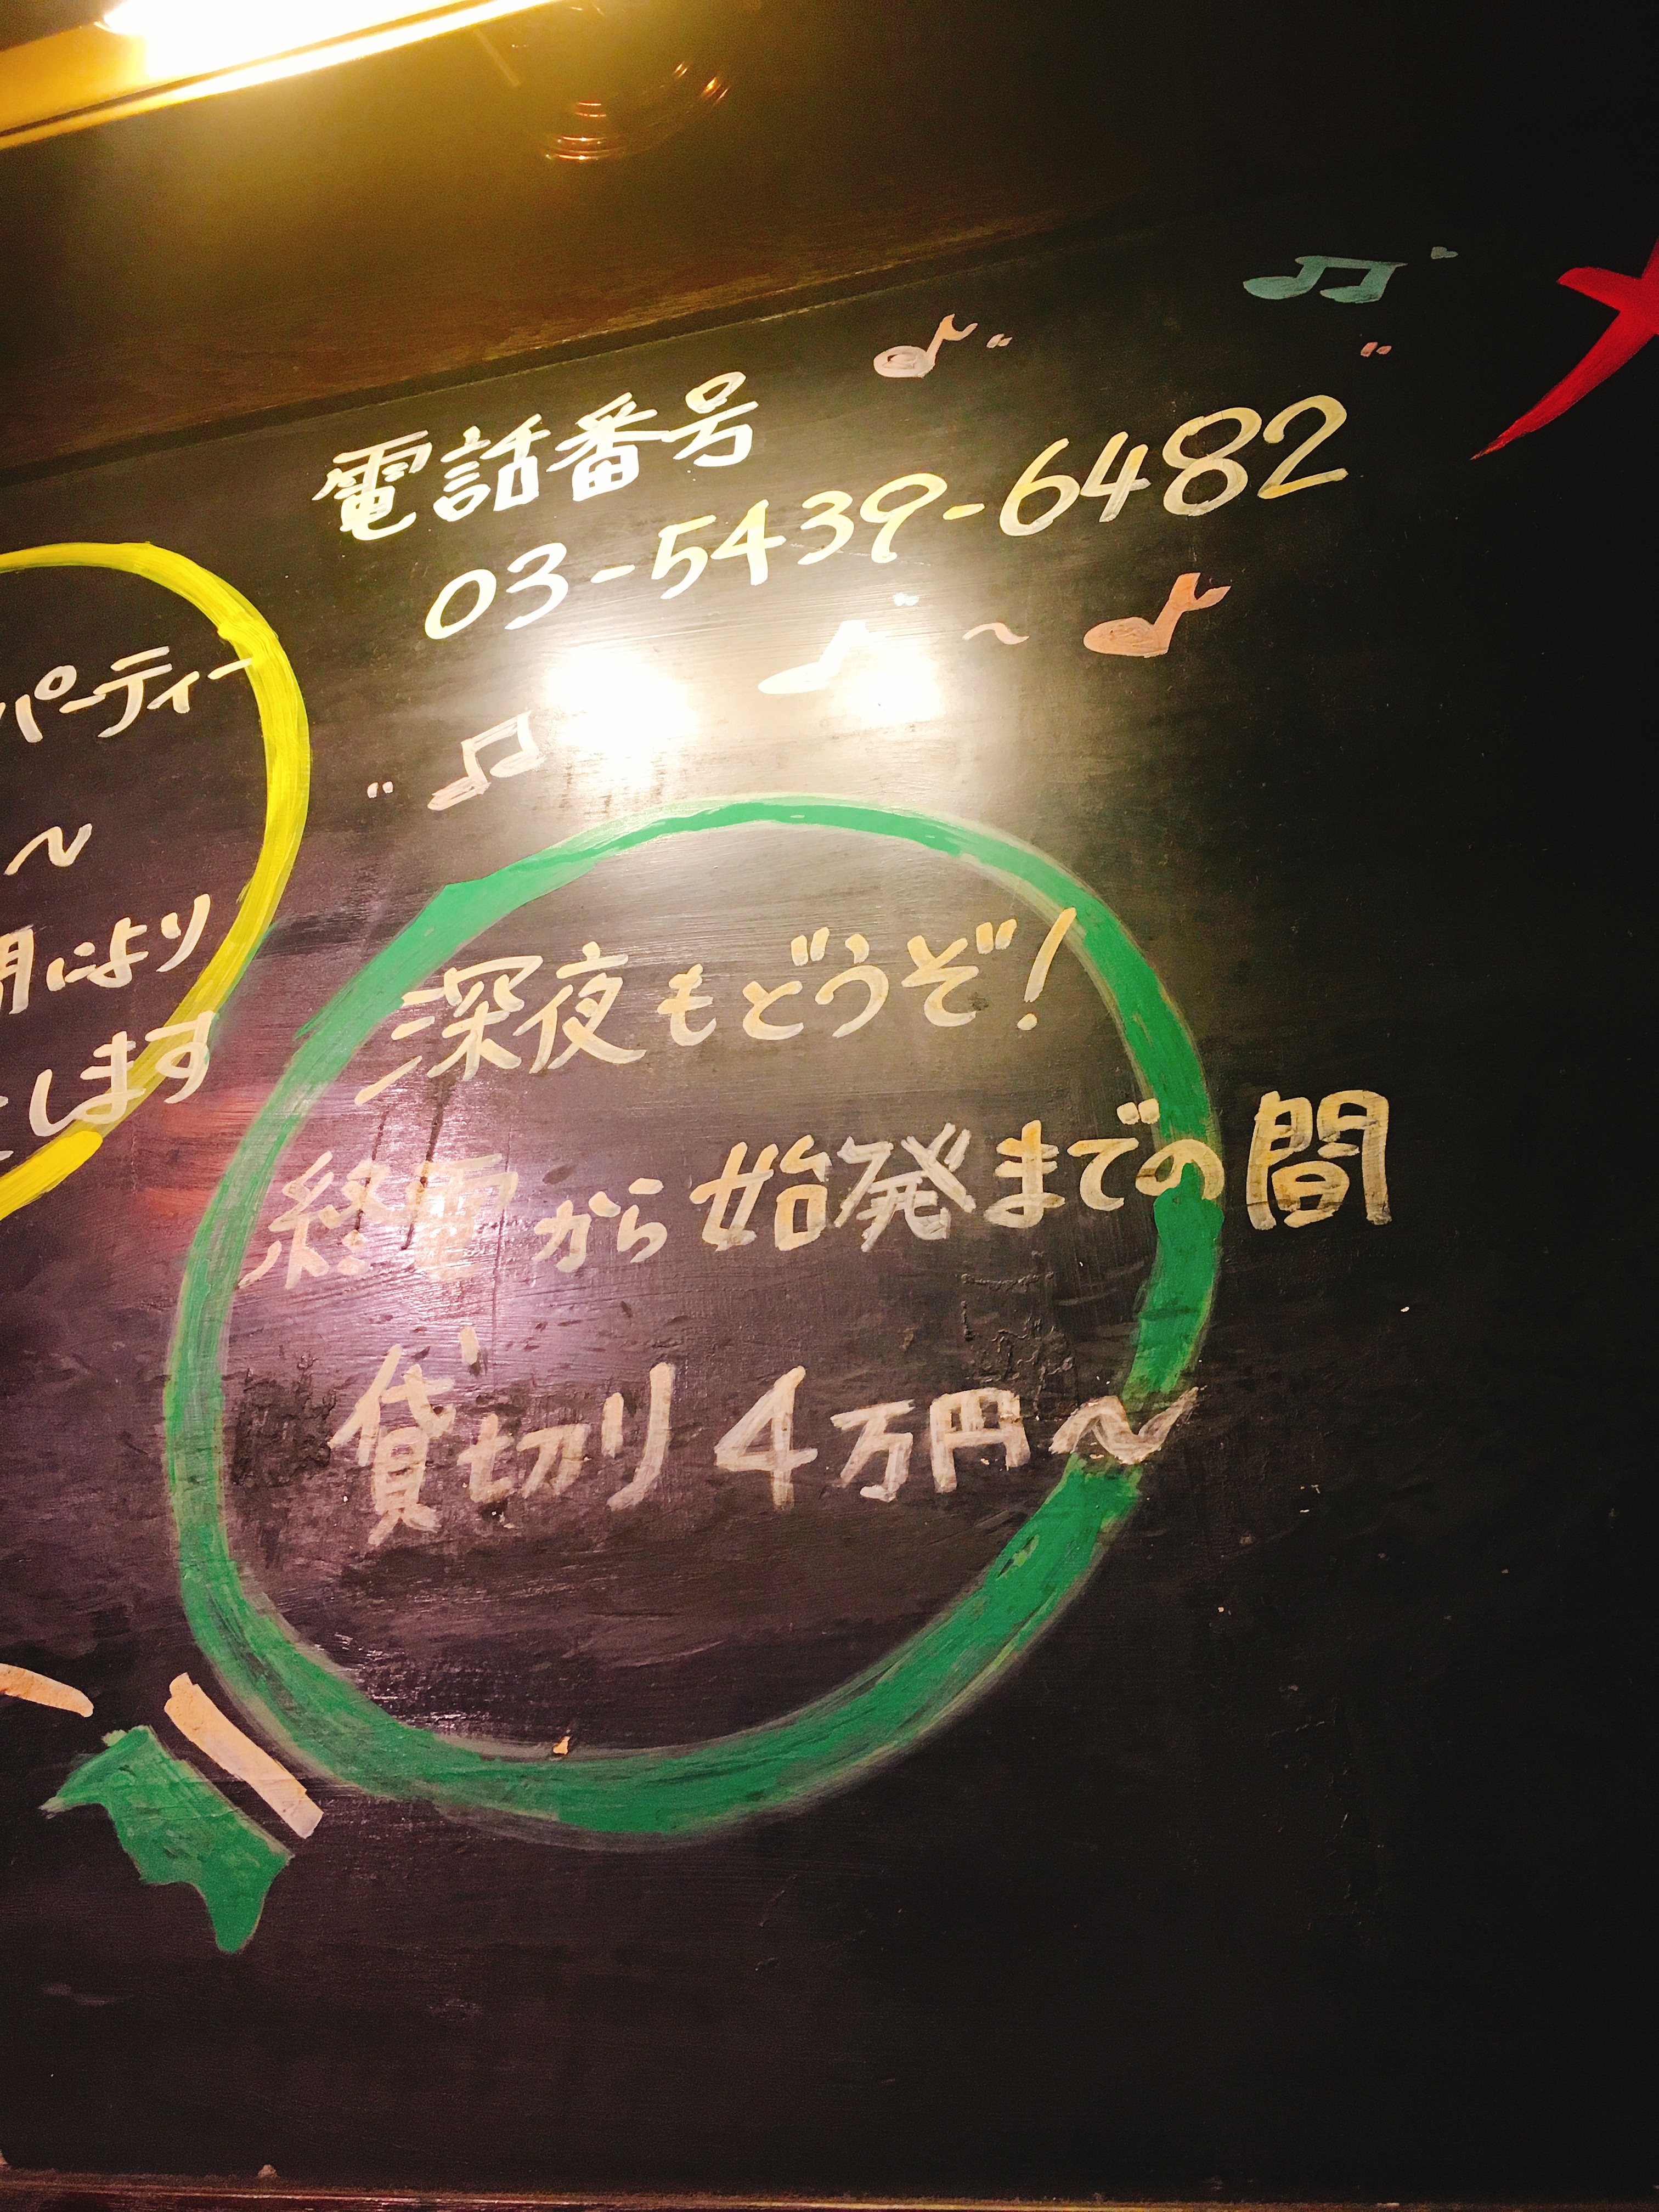 電話番号
03-5439-6482
パーティー
～
間により
します
深夜もどうぞ!
終電から始発までの間
貸切り4万円～